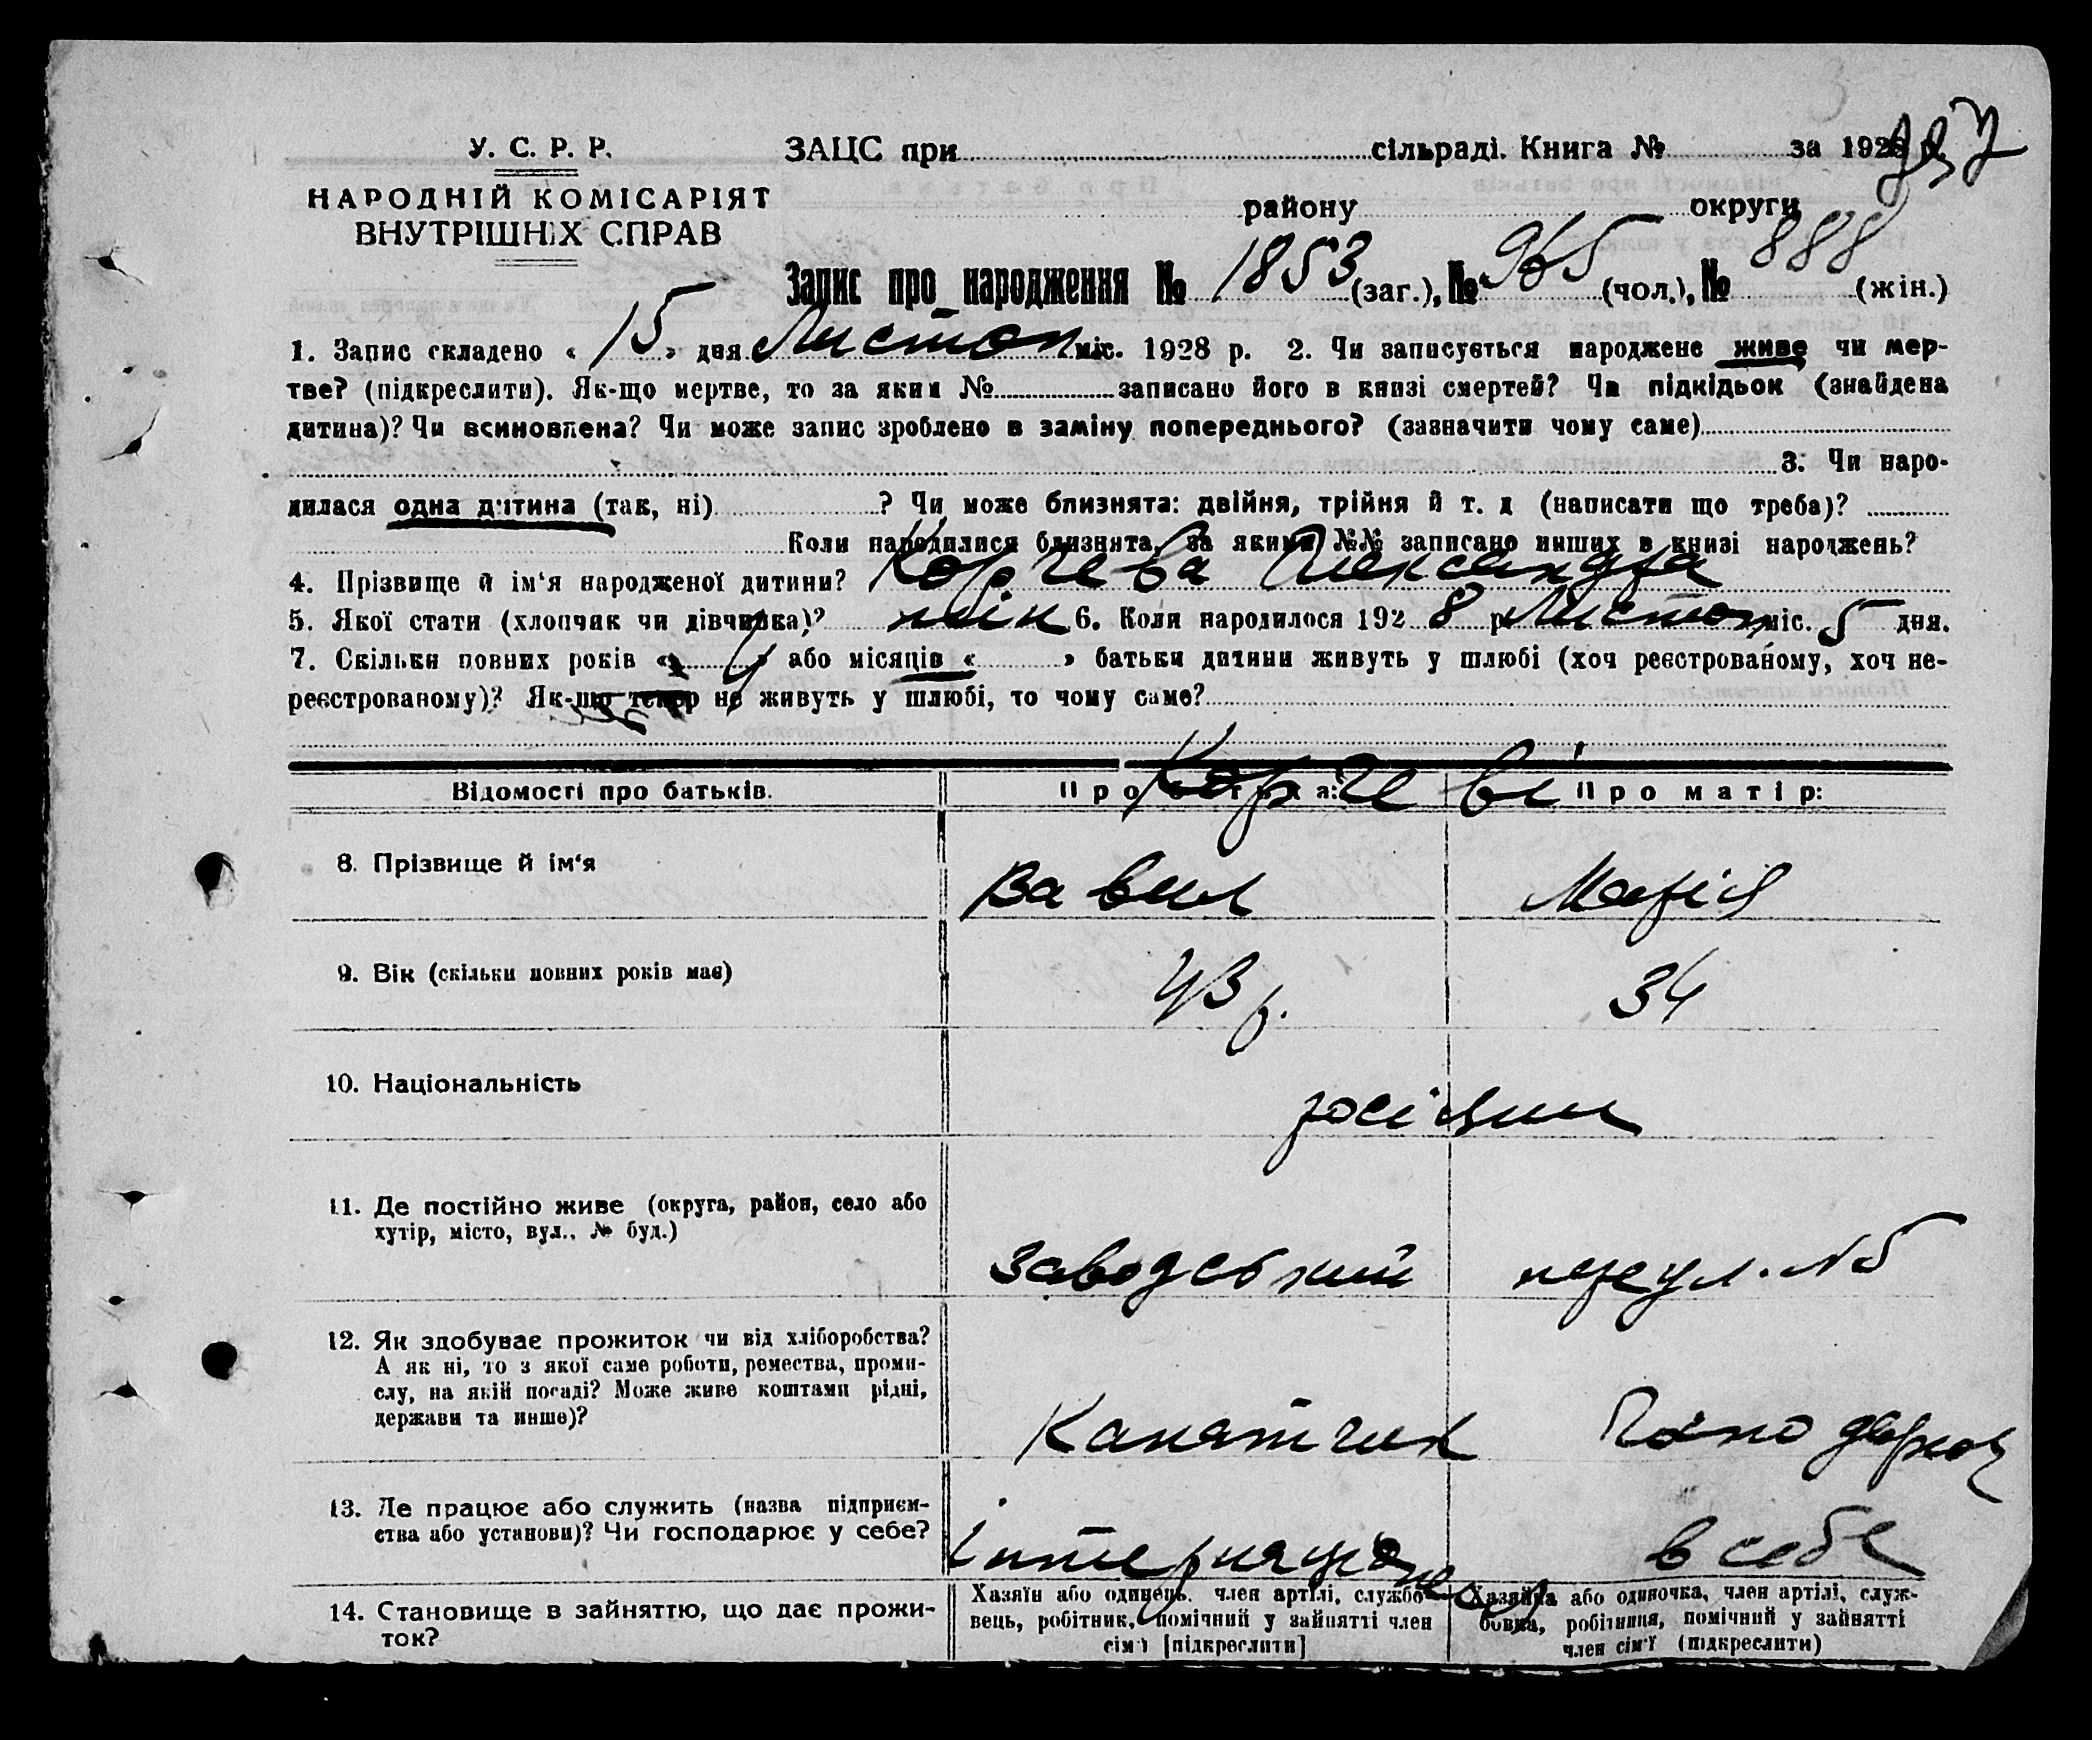 У. С. Р. Р.
НАРОДНІЙ КОМІСАРІЯТ
ВНУТРІШНІХ СПРАВ
ЗАЦС при сільраді. Книга № за 1928 р.
району округи
Запис про народження № 1853 (заг.), № 965 (чол.), № 888 (жін.)
1. Запис складено « 15 » дня Листоп міс. 1928 р. 2. Чи записується народжене живе чи мер-
тве? (підкреслити). Як-що мертве, то за яким № записано його в книзі смертей? Чи підкідьок (знайдена
дитина)? Чи всиновлена? Чи може запис зроблено в заміну попереднього? (зазначити чому саме)
3. Чи наро-
дилася одна дитина (так, ні) ? Чи може близнята: двійня, трійня й т. д (написати що треба)?
Коли народилися близнята, за якими №№ записано инших в книзі народжень?
4. Прізвище й ім‘я народженої дитини? Корчева Олександра
5. Якої стати (хлопчик чи дівчинка)? жін 6. Коли народилося 192 8 р Листоп міс. 5 дня.
7. Скільки повних років « » або місяців « » батьки дитини живуть у шлюбі (хоч реєстрованому, хоч не-
реєстрованому)? Як-що тепер не живуть у шлюбі, то чому саме?
Корчеві
Відомості про батьків. Про батька: Про матір:
8. Прізвище й ім‘я Вавил Марія
9. Вік (скільки повних років має) 43 р. 34
10. Національність росіяни
11. Де постійно живе (округа, район, село або
хутір, місто, вул., № буд.)
Заводський переул. №5
12. Як здобуває прожиток чи від хліборобства?
А як ні, то з якої саме роботи, ремества, проми-
слу, на якій посаді? Може живе коштами рідні,
держави та инше)?
Канатчик
13. Де працює або служить (назва підприєм-
ства або установи)? Чи господарює у себе?
в себе
14. Становище в зайняттю, що дає прожи-
ток?
Хазяїн або одинець, член артілі, службо-
вець, робітник, помічний у зайнятті член
сім‘ї [підкреслити]
Хазяйка або одиночка, член артілі, служ-
бовка, робітниця, помічний у зайнятті
член сім‘ї (підкреслити)